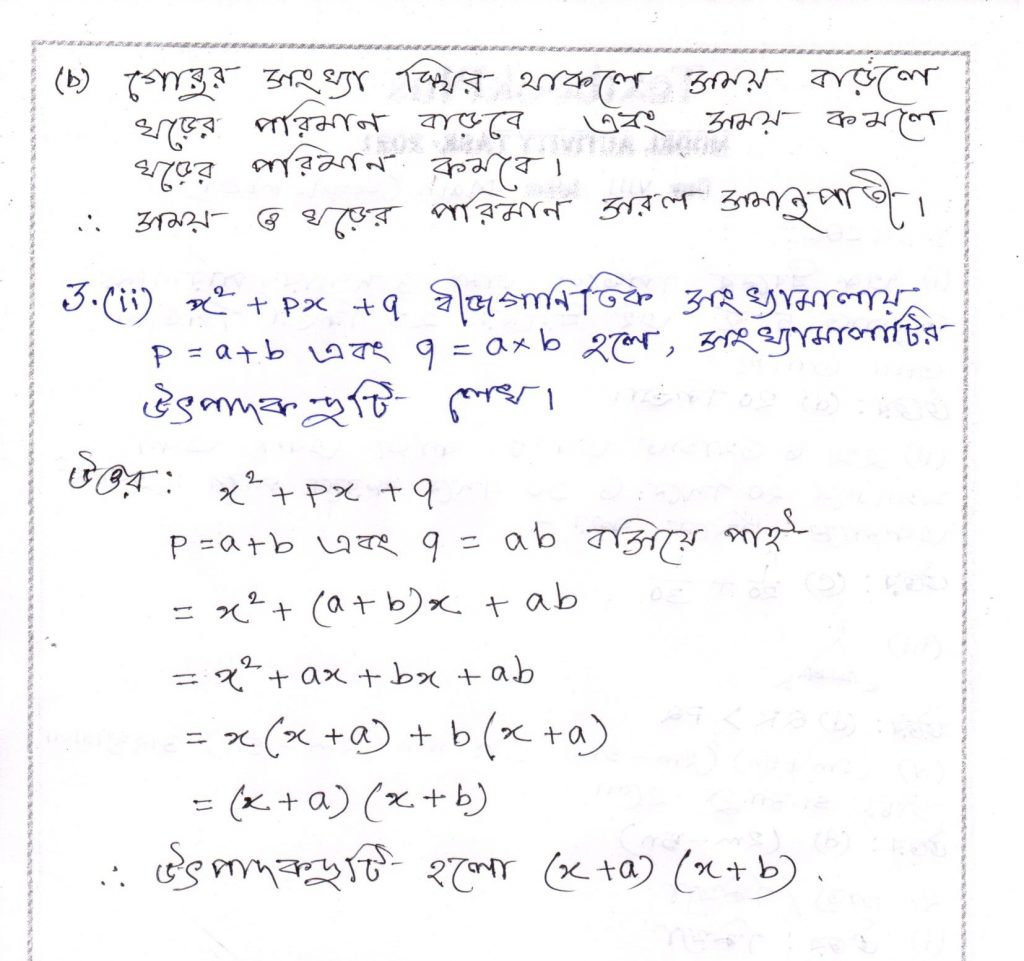 (b) গোরুর সংখ্যা স্থির থাকলে সময় বাড়লে
খড়ের পরিমান বাড়বে এবং সময় কমলে
খড়ের পরিমান কমবে।
∴ সময় ও খড়ের পরিমান সরল সমানুপাতী।
3.(ii) x² + px + q বীজগানিতিক সংখ্যামালায়
p = a+b এবং q = a×b হলে, সংখ্যামালাটির
উৎপাদক দুটি লেখ।
উত্তর : x² + px + q
p = a+b এবং q = ab বসিয়ে পাই
= x² + (a+b)x + ab
= x² + ax + bx + ab
= x(x+a) + b(x+a)
= (x+a) (x+b)
∴ উৎপাদকদুটি হলো (x+a) (x+b).